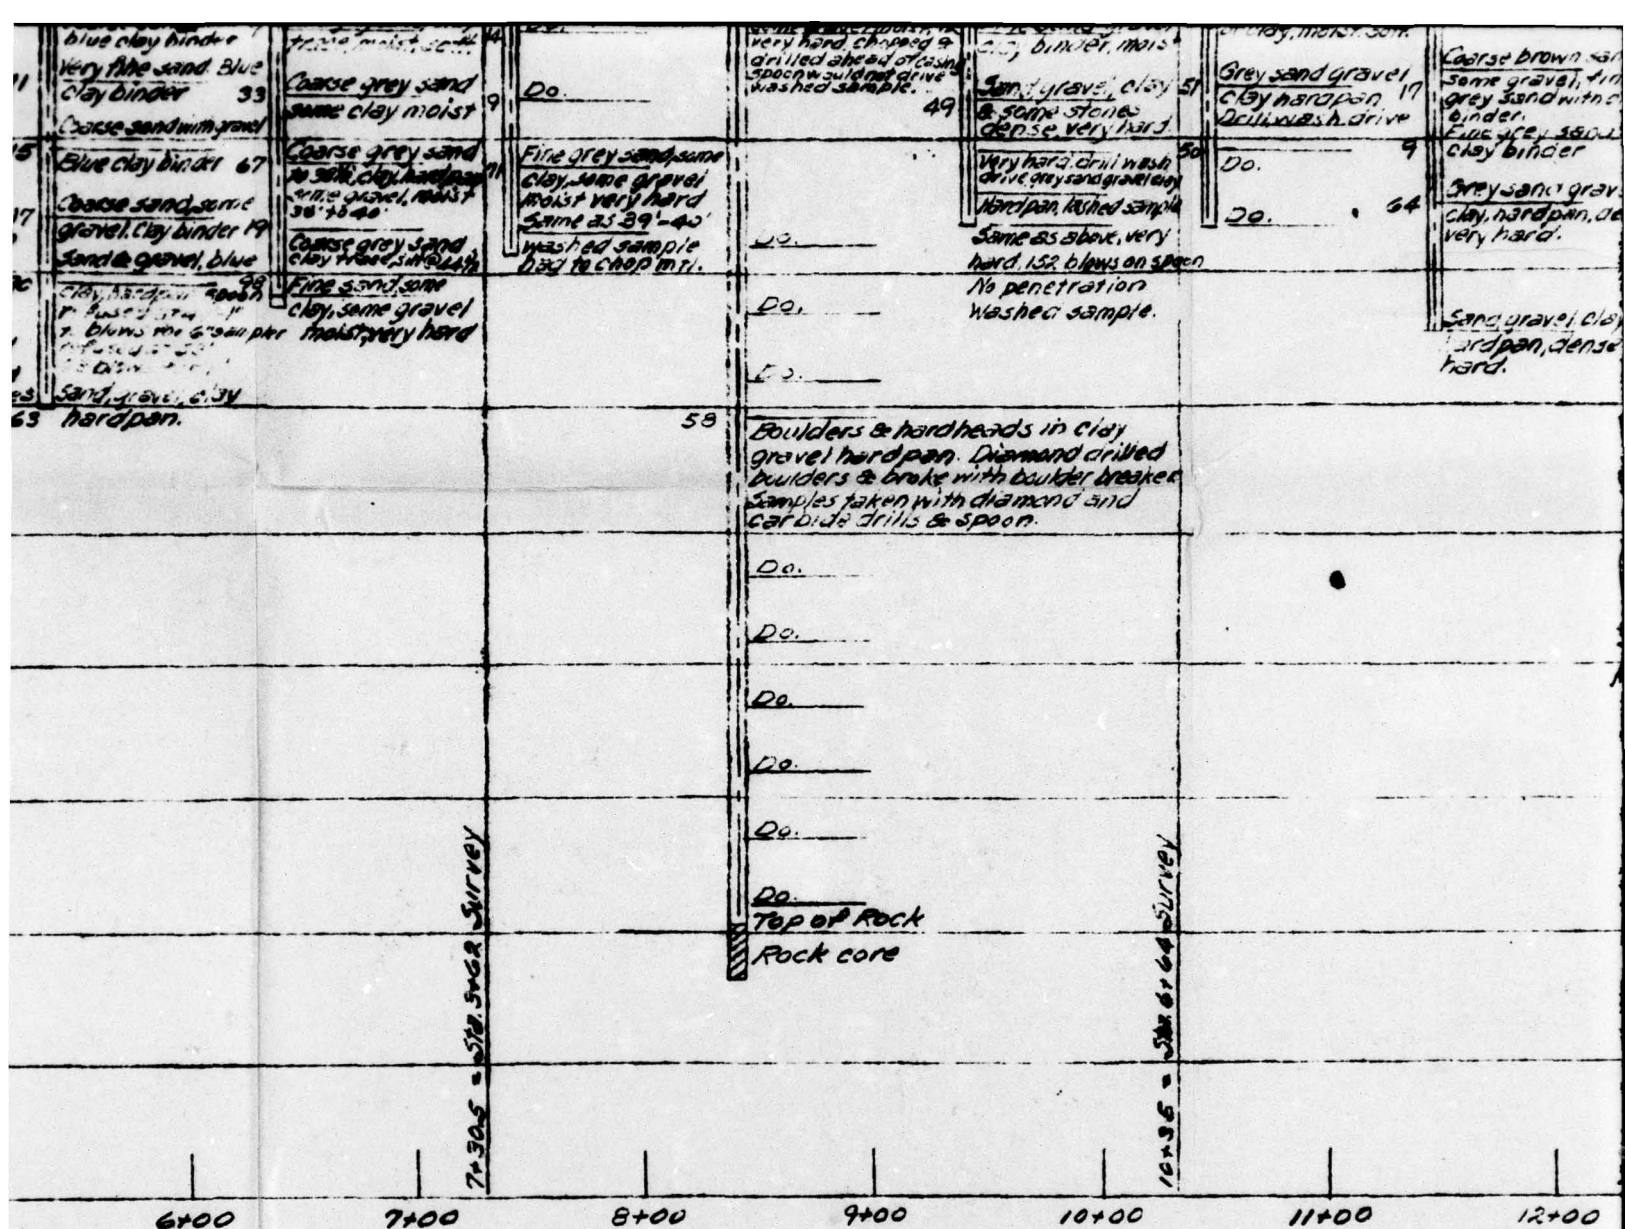 blue clay binder
Very fine sand. Blue
clay binder 33
Coarse sand with gravel
Blue clay binder 67
Coarse sand, some
gravel. Clay binder 19
Sand & gravel, blue
clay, hardpan spoon 98
refused
blows
Sand, gravel, clay
63 hardpan.
Coarse grey sand
some clay moist 9
Coarse grey sand
clay, hardpan 71
some gravel, moist
38' to 40'
Coarse grey sand
Fine sand, some
clay, some gravel
moist, very hard
14
Do.
Do.
Fine grey sand, some
clay, some gravel
moist very hard
Same as 39'-40'
washed sample
had to chop mtl.
very hard, chopped &
drilled ahead of casing
spoon would not drive
washed sample.
49
Do.
Do.
Do.
58
Boulders & hardheads in clay
gravel hardpan. Diamond drilled
boulders & broke with boulder breaker
Samples taken with diamond and
carbide drills & spoon.
Do.
Do.
Do.
Do.
Do.
Do.
Top of Rock
Rock core
clay binder, moist
Sand, gravel, clay 51
& some stones
dense, very hard.
Very hard, drill wash 50
drive, grey sand gravel clay
Hardpan, washed sample
Same as above, very
hard, 152 blows on spoon
No penetration
Washed sample.
of clay, moist. soft.
Grey sand gravel
clay hardpan 17
Drill, wash, drive
Do. 9
Do. 64
Coarse brown san
some gravel, fin
grey sand with c
binder.
Fine grey sand
clay binder
Grey sand grav
clay, hardpan, de
very hard.
Sand, gravel, clay
hardpan, dense
hard.
7+30.5 = Sta. 3+62 Survey
10+35 = Sta. 6+64 Survey
6+00 7+00 8+00 9+00 10+00 11+00 12+00